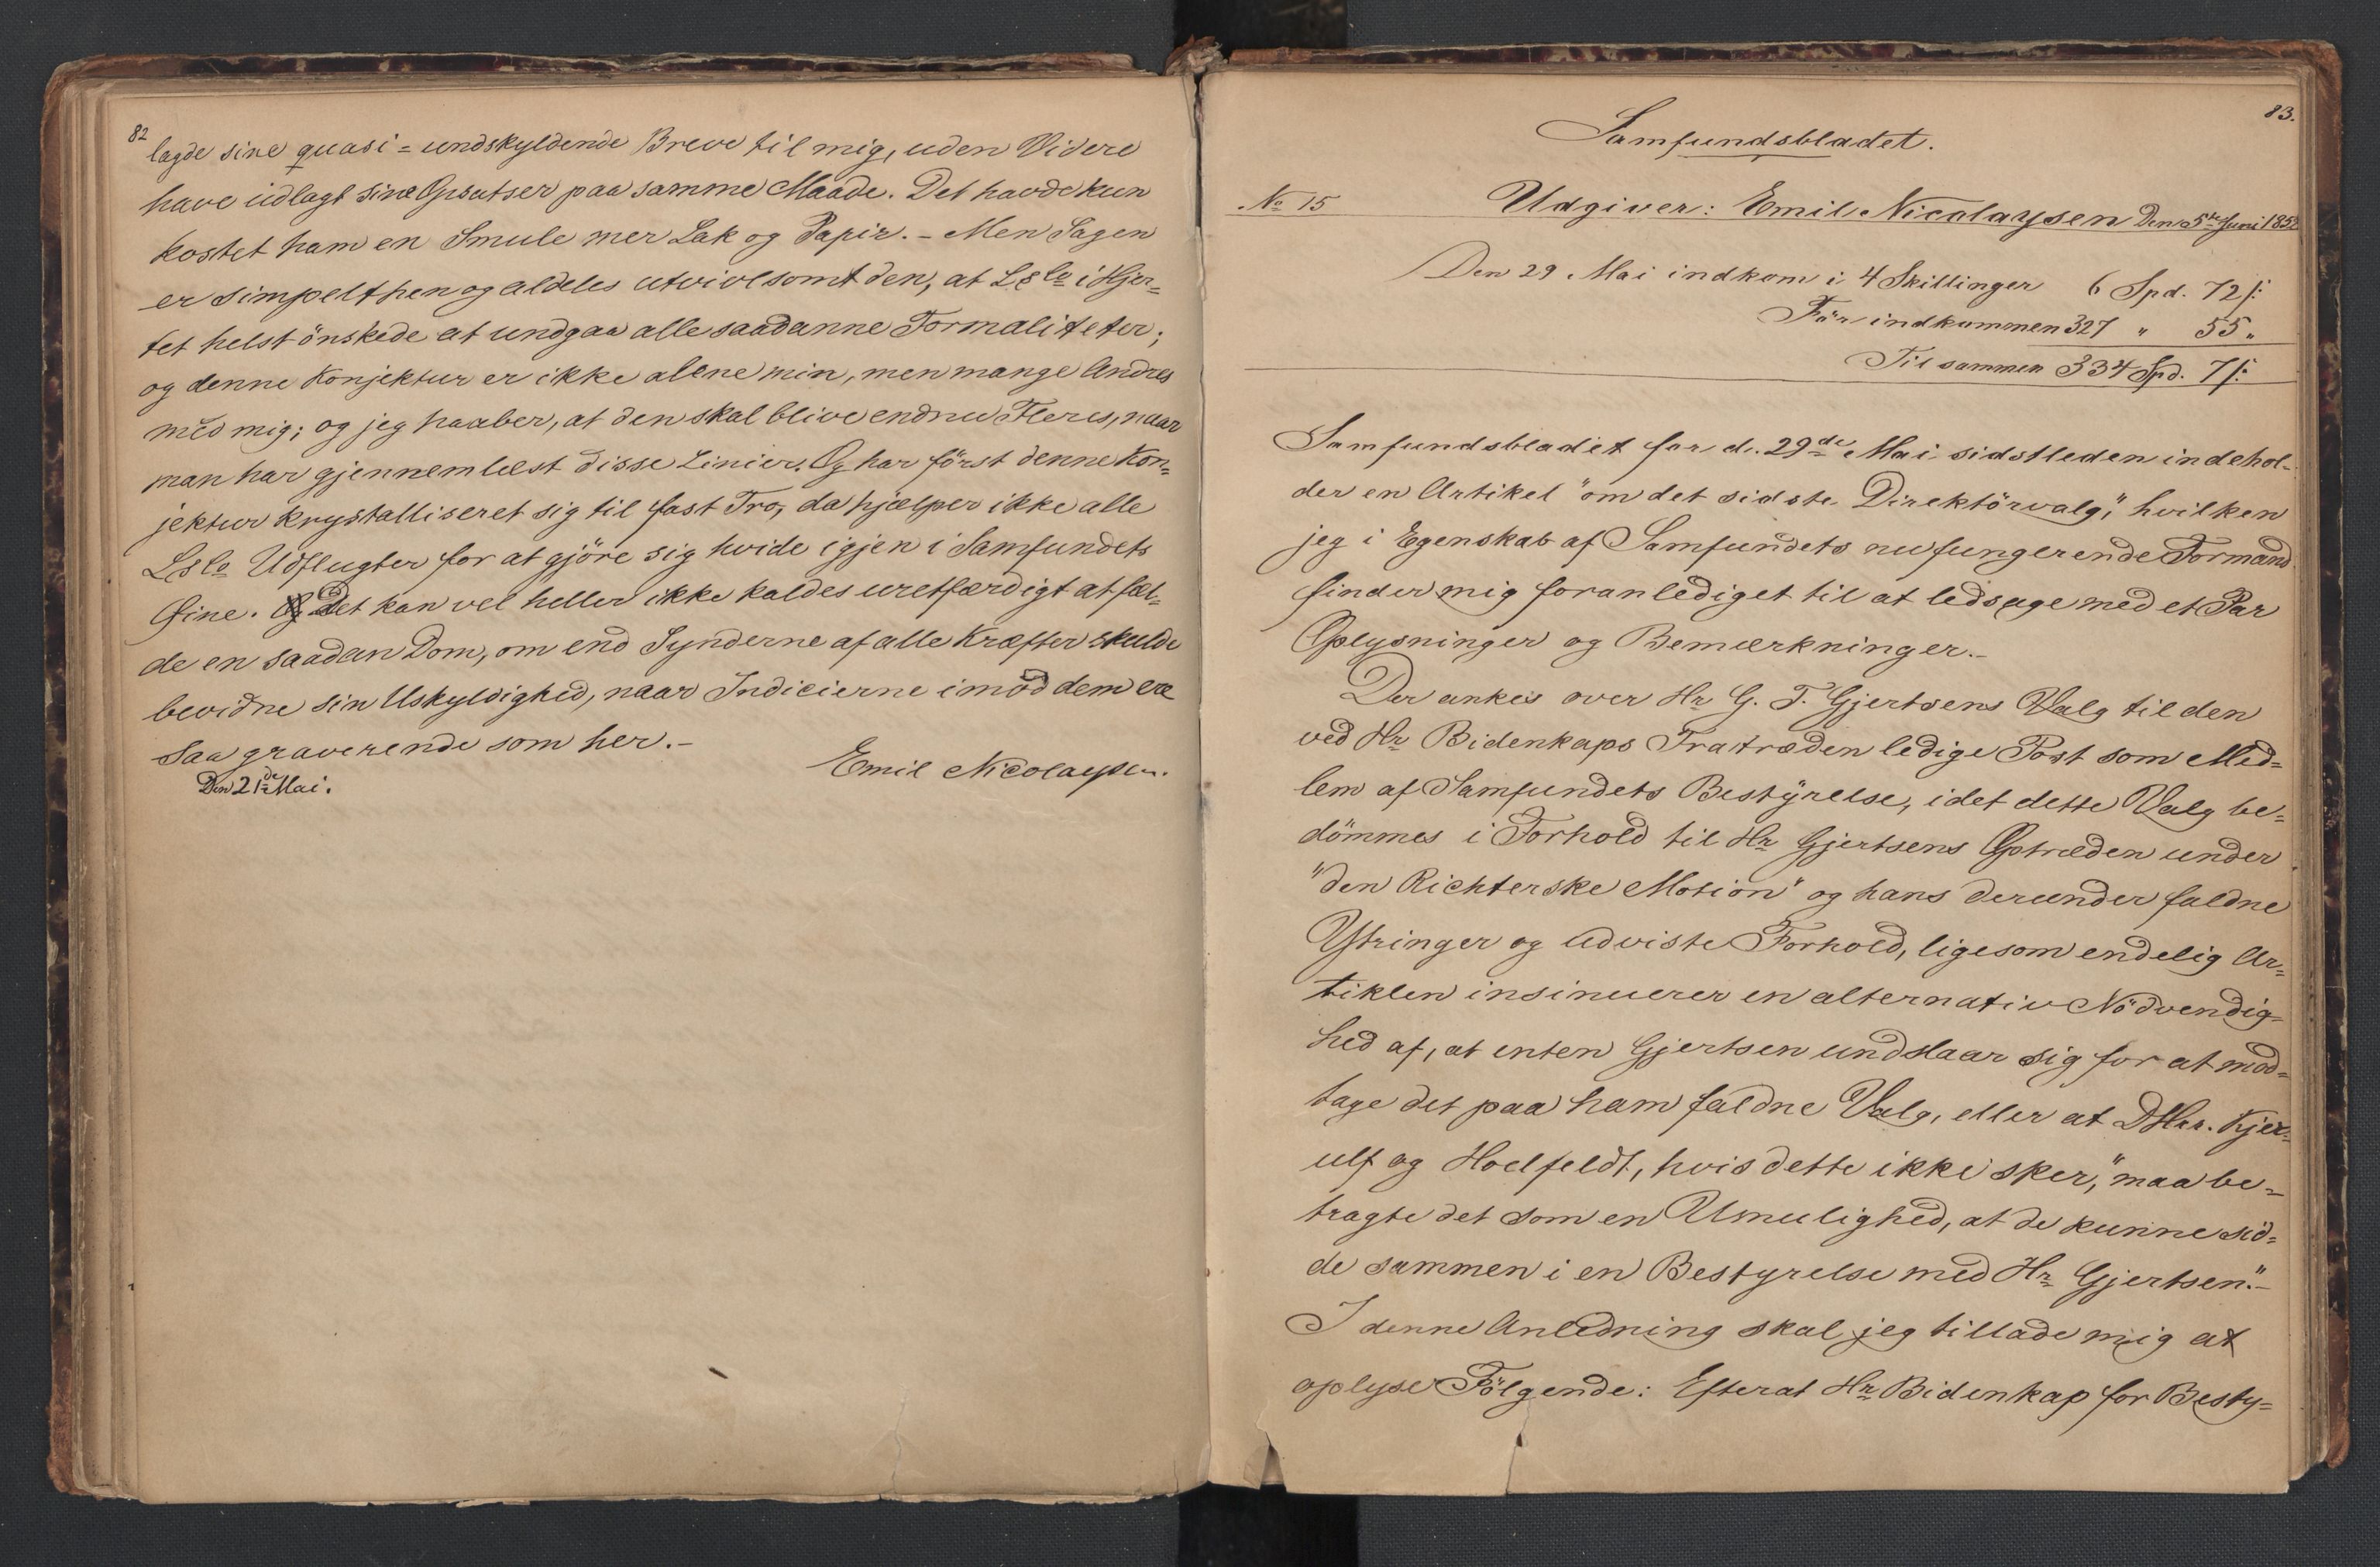 82
lagde sine quasi=undskyldende Breve til mig, uden Videre
have idlagt sine Opsatser paa samme Maade. Det havde kun
kostet ham en Smule mer Lak og Papir. – Men Sagen
er simpelthen og aldeles utvivlsomt den, at L&Co i Hjer=
tet helst önskede at undgaa alle saadanne Formaliteter;
og denne Konjektur er ikke alene min, men mange Andres
med mig; og jeg haaber, at den skal blive endnu Fleres, naar
man har gjennemlæst disse Linier. Og har först denne Kon=
jektur krystalliseret sig til fast Tro, da hjælper ikke alle
L&Co Udflugter for at gjöre sig hvide igjen i Samfundets
Öine. Det kan vel heller ikke kaldes uretfærdigt at fæl=
de en saadan Dom, om end Synderne af alle Kræfter skulde
bevidne sin Uskyldighed, naar Indicierne imod dem ere
saa graverende som her. –
Emil Nicolaysen.
Den 21de Mai.
83.
Samfundsbladet.
No 15 Udgiver: Emil Nicolaysen Den 5te Juni 1852
Den 29 Mai indkom i 4 Skillinger 6 Spd. 72 ſ:
För indkommen 327 " 55 "
Tilsammen 334 Spd. 7 ſ:
Samfundsbladet for d. 29de Mai sidstleden indehol=
der en Artikel "om det sidste Direktörvalg," hvilken
jeg i Egenskab af Samfundets nu fungerende Formand
finder mig foranlediget til at ledsage med et Par
Oplysninger og Bemærkninger. –
Der ankes over Hr G. F. Gjertsens Valg til den
ved Hr Bidenkaps Fratræden ledige Post som Med=
lem af Samfundets Bestyrelse, idet dette Valg be=
dömmes i Forhold til Hr Gjertsens Optræden under
"den Richterske Motion" og hans derunder faldne
Ytringer og udviste Forhold, ligesom endelig Ar=
tiklen insinuerer en alternativ Nödvendig=
hed af, at enten Gjertsen undslaar sig for at mod=
tage det paa ham faldne Valg, eller at DHrr. Kjer=
ulf og Hoelfeldt, hvis dette ikke sker, "maa be=
tragte det som en Umulighed, at de kunne sid=
de sammen i en Bestyrelse med Hr Gjertsen." –
I denne Anledning skal jeg tillade mig at
oplyse Fölgende: Efterat Hr Bidenkap for Besty=